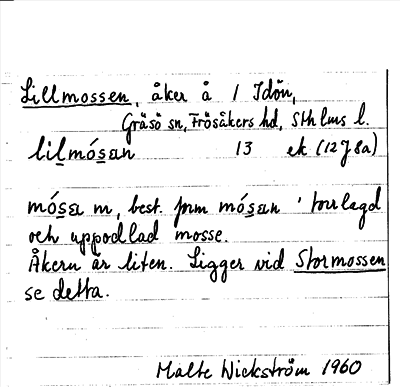 Lillmossen, åker å / Idön,
Gräsö sn, Frösåkers hd, Sthlms l.
lilmósan 13 ek (12J8a)
mósa m, best. form mósan 'torrlagd
och uppodlad mosse.
Åkern är liten. Ligger vid Stormossen
se detta.
Malte Wickström 1960